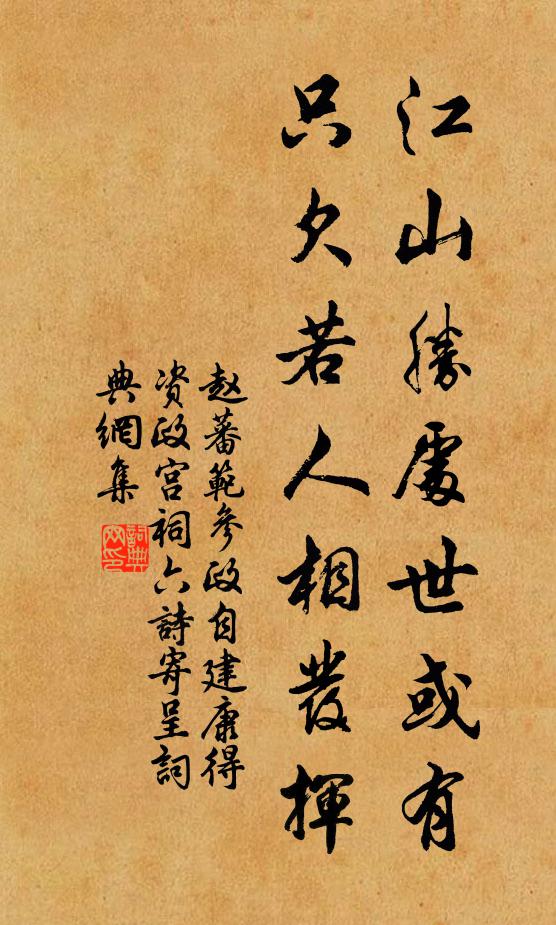 江山勝處世或有
只欠若人相發揮
赵蕃範參政自建康得
资政宫祠六詩寄呈詞
典網集
詞典
网印